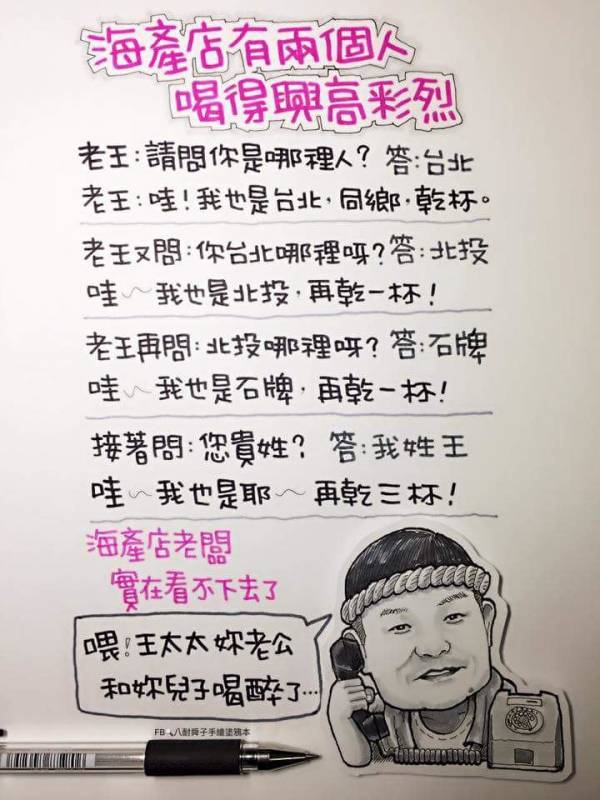 海產店有兩個人
喝得興高彩烈
老王:請問你是哪裡人?答:台北
老王:哇!我也是台北,同鄉,乾杯。
老王又問:你台北哪裡呀?答:北投
哇~我也是北投,再乾一杯!
老王再問:北投哪裡呀?答:石牌
哇~我也是石牌,再乾一杯!
接著問:您貴姓? 答:我姓王
哇~我也是耶~再乾三杯!
海產店老闆
實在看不下去了
喂!王太太妳老公
和妳兒子喝醉了...
FB 八耐舜子手繪塗鴉本